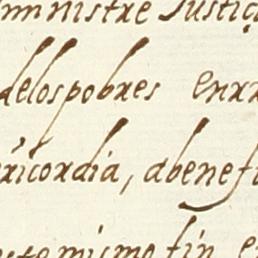 ministre Justiça
delospobres enrr
ricordia, abenef
mismo fin e